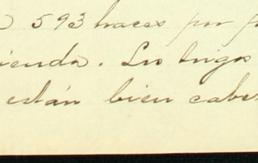 593 haces por p
ienda. Los trigos
están bien cabe